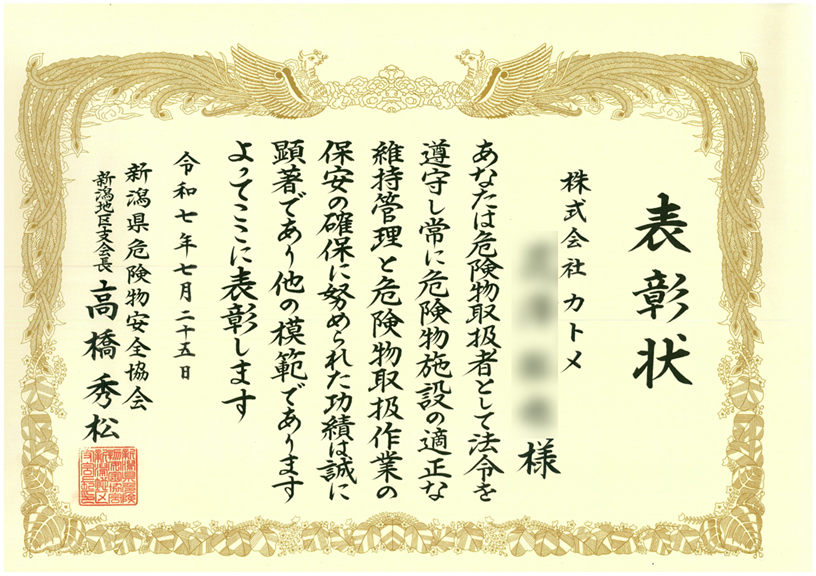 表彰状
株式会社 カトメ
様
あなたは危険物取扱者として法令を
遵守し常に危険物施設の適正な
維持管理と危険物取扱作業の
保安の確保に努められた功績は誠に
顕著であり他の模範であります
よってここに表彰します
令和七年七月二十五日
新潟県危険物安全協会
新潟地区支会長 高橋秀松